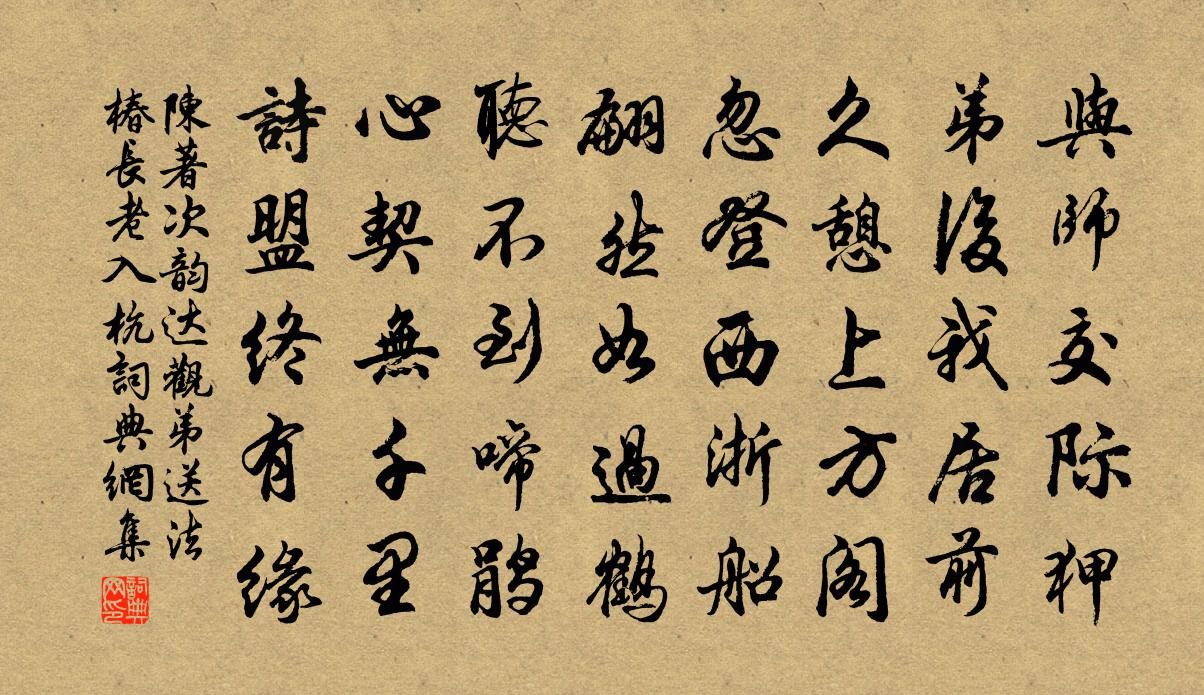 與師交际狎
弟後我居前
久憩上方阁
忽登西浙船
翩然如過鶴
聽不到啼鹃
心契無千里
詩盟终有緣
陳著次韵达觀弟送法
椿長老入杭詞典網集
詞典网印